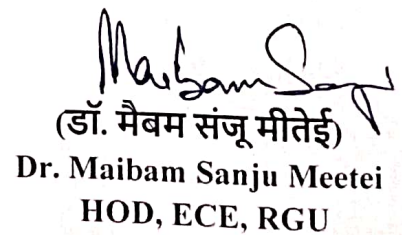 Maibam Sanju
(डॉ. मैबम संजू मीतेई)
Dr. Maibam Sanju Meetei
HOD, ECE, RGU